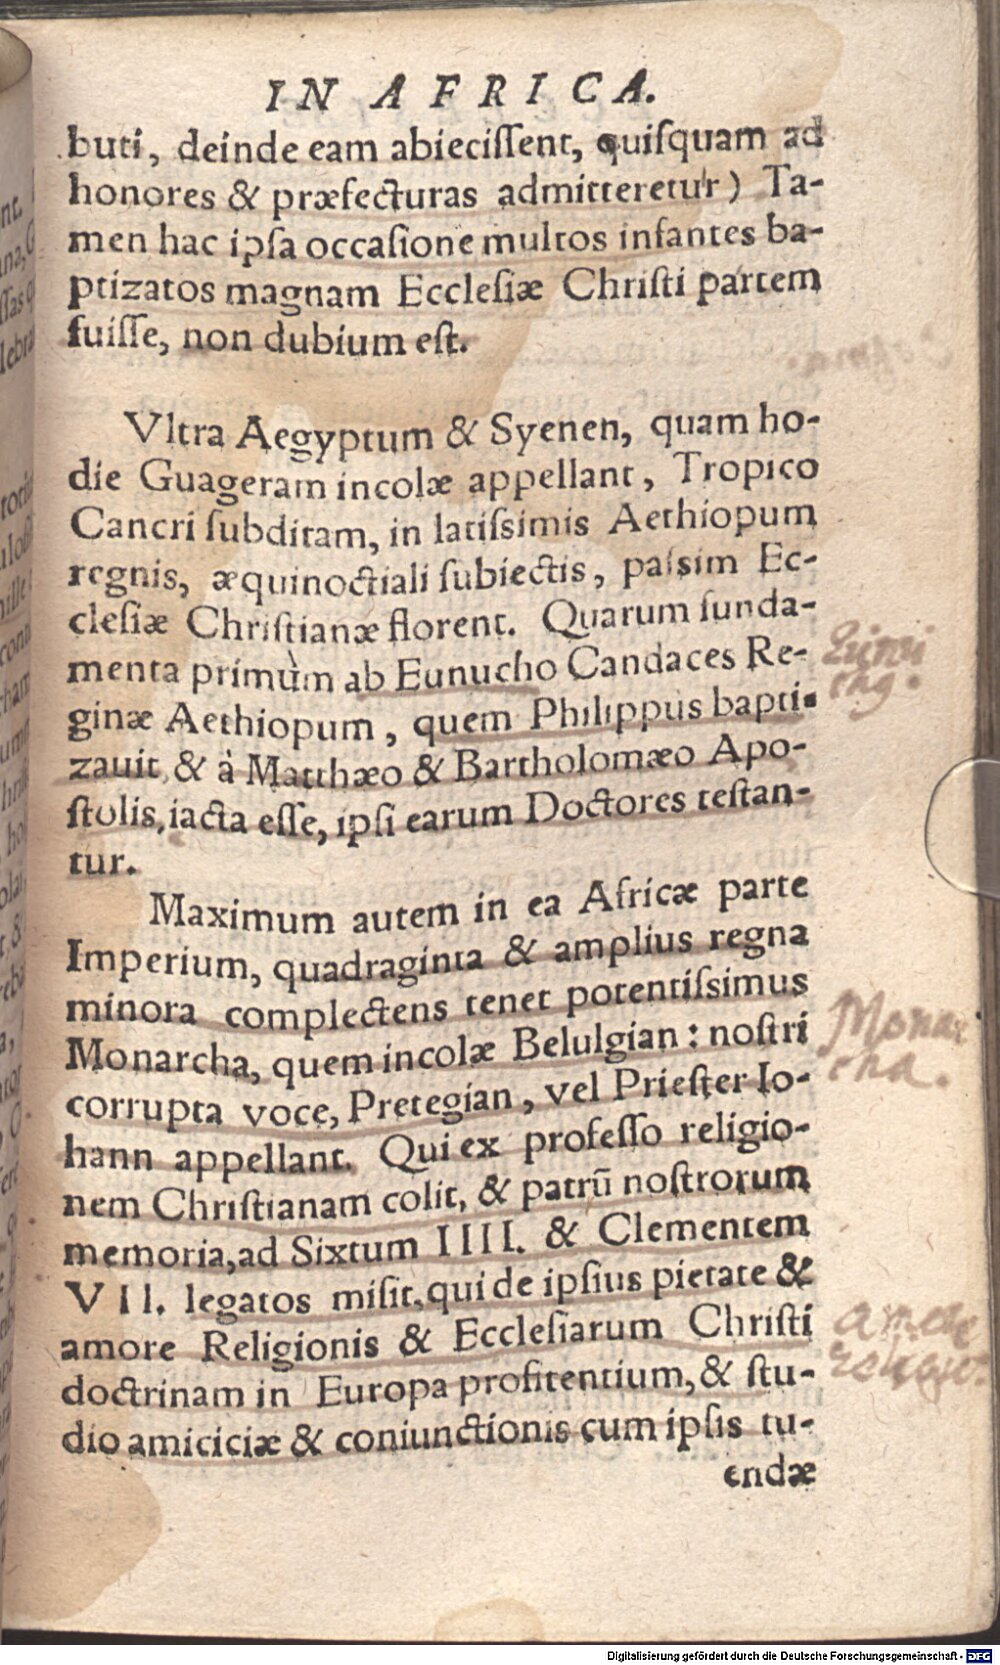 IN AFRICA.
buti, deinde eam abieciſſent, quiſquam ad
honores & præfecturas admitteretur) Ta-
men hac ipſa occaſione multos infantes ba-
ptizatos magnam Eccleſiæ Chriſti partem
fuiſſe, non dubium eſt.
Vltra Aegyptum & Syenen, quam ho-
die Guageram incolæ appellant, Tropico
Cancri ſubditam, in latiſsimis Aethiopum
regnis, æquinoctiali ſubiectis, paſsim Ec-
cleſiæ Chriſtianæ florent. Quarum funda-
menta primùm ab Eunucho Candaces Re-
ginæ Aethiopum, quem Philippus bapti-
zauit, & à Matthæo & Bartholomæo Apo-
ſtolis, iacta eſſe, ipſi earum Doctores teſtan-
tur.
Maximum autem in ea Africæ parte
Imperium, quadraginta & amplius regna
minora complectens tenet potentiſsimus
Monarcha, quem incolæ Belulgian: noſtri
corrupta voce, Pretegian, vel Prieſter Io-
hann appellant. Qui ex profeſſo religio-
nem Chriſtianam colit, & patrũ noſtrorum
memoria, ad Sixtum IIII. & Clementem
VII. legatos miſit, qui de ipſius pietate &
amore Religionis & Eccleſiarum Chriſti
doctrinam in Europa profitentium, & ſtu-
dio amiciciæ & coniunctionis cum ipſis tu-
endæ
Monar
cha.
amore
religio.
Digitalisierung gefördert durch die Deutsche Forschungsgemeinschaft - DFG